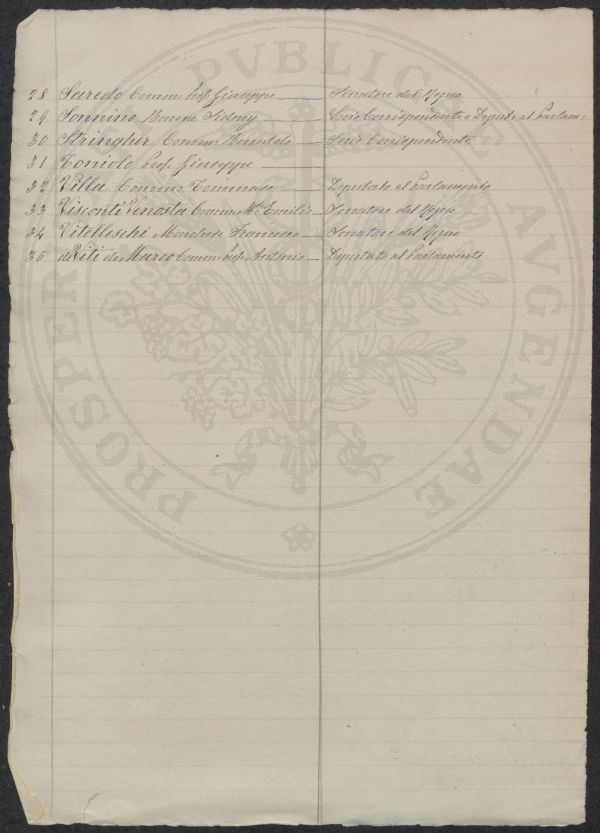 PROSPERI PVBLICAE AVGENDAE
28 Saredo Comm. Prof. Giuseppe — Senatore del Regno
29 Sonnino Barone Sidney — Socio Corrispondente e Deputato al Parlam.
30 Stringher Comm. Bonaldo — Socio Corrispondente
31 Toniolo Prof. Giuseppe —
32 Villa Comm. Tommaso — Deputato al Parlamento
33 Visconti Venosta Comm. Mse Emilio — Senatore del Regno
34 Vitelleschi Marchese Francesco — Senatore del Regno
35 de Viti de Marco Comm. Prof. Antonio — Deputato al Parlamento